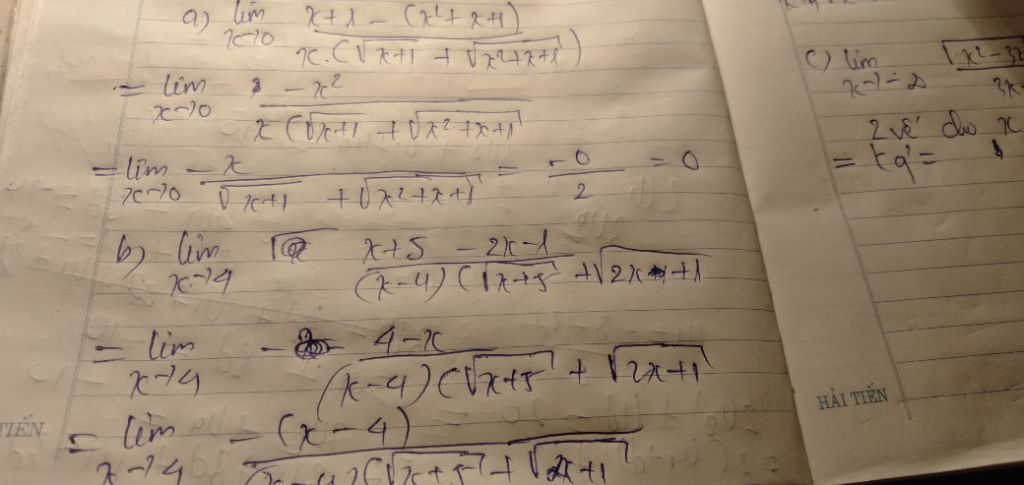 a) lim x→0 x+1 - (x²+x+1) / x.(√x+1 + √x²+x+1)
= lim x→0 -x² / x(√x+1 + √x²+x+1
= lim x→0 -x / √x+1 + √x²+x+1 = -0 / 2 = 0
b) lim x→4 x+5 - 2x-1 / (x-4)(√x+5 + √2x+1
= lim x→4 4-x / (x-4)(√x+5 + √2x+1
= lim x→4 -(x-4) / (x-4)(√x+5 + √2x+1
TIẾN
c) lim √x²-3x
2 vế cho x
= kq =
HẢI TIẾN